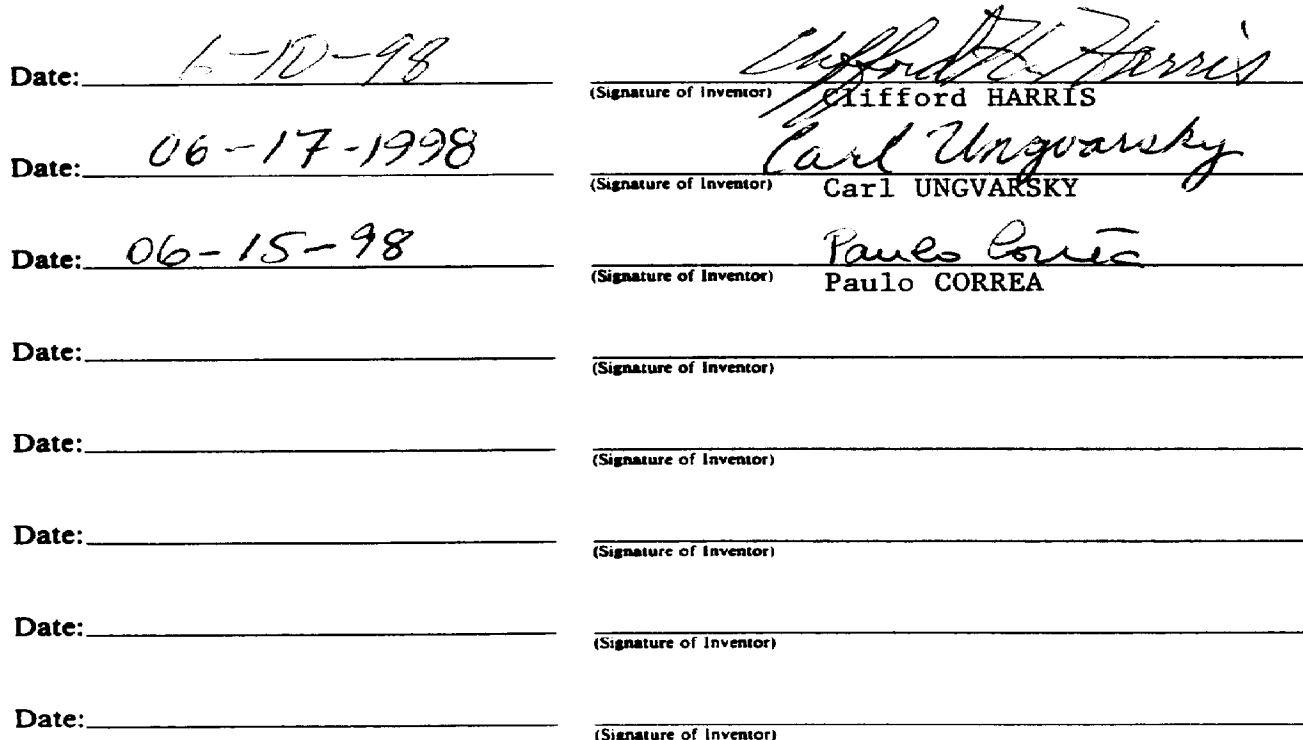 Date: 6-10-98 Clifford H. Harris
(Signature of Inventor) Clifford HARRIS
Date: 06-17-1998 Carl Ungvarsky
(Signature of Inventor) Carl UNGVARSKY
Date: 06-15-98 Paulo Corrêa
(Signature of Inventor) Paulo CORREA
Date:
(Signature of Inventor)
Date:
(Signature of Inventor)
Date:
(Signature of Inventor)
Date:
(Signature of Inventor)
Date:
(Signature of Inventor)